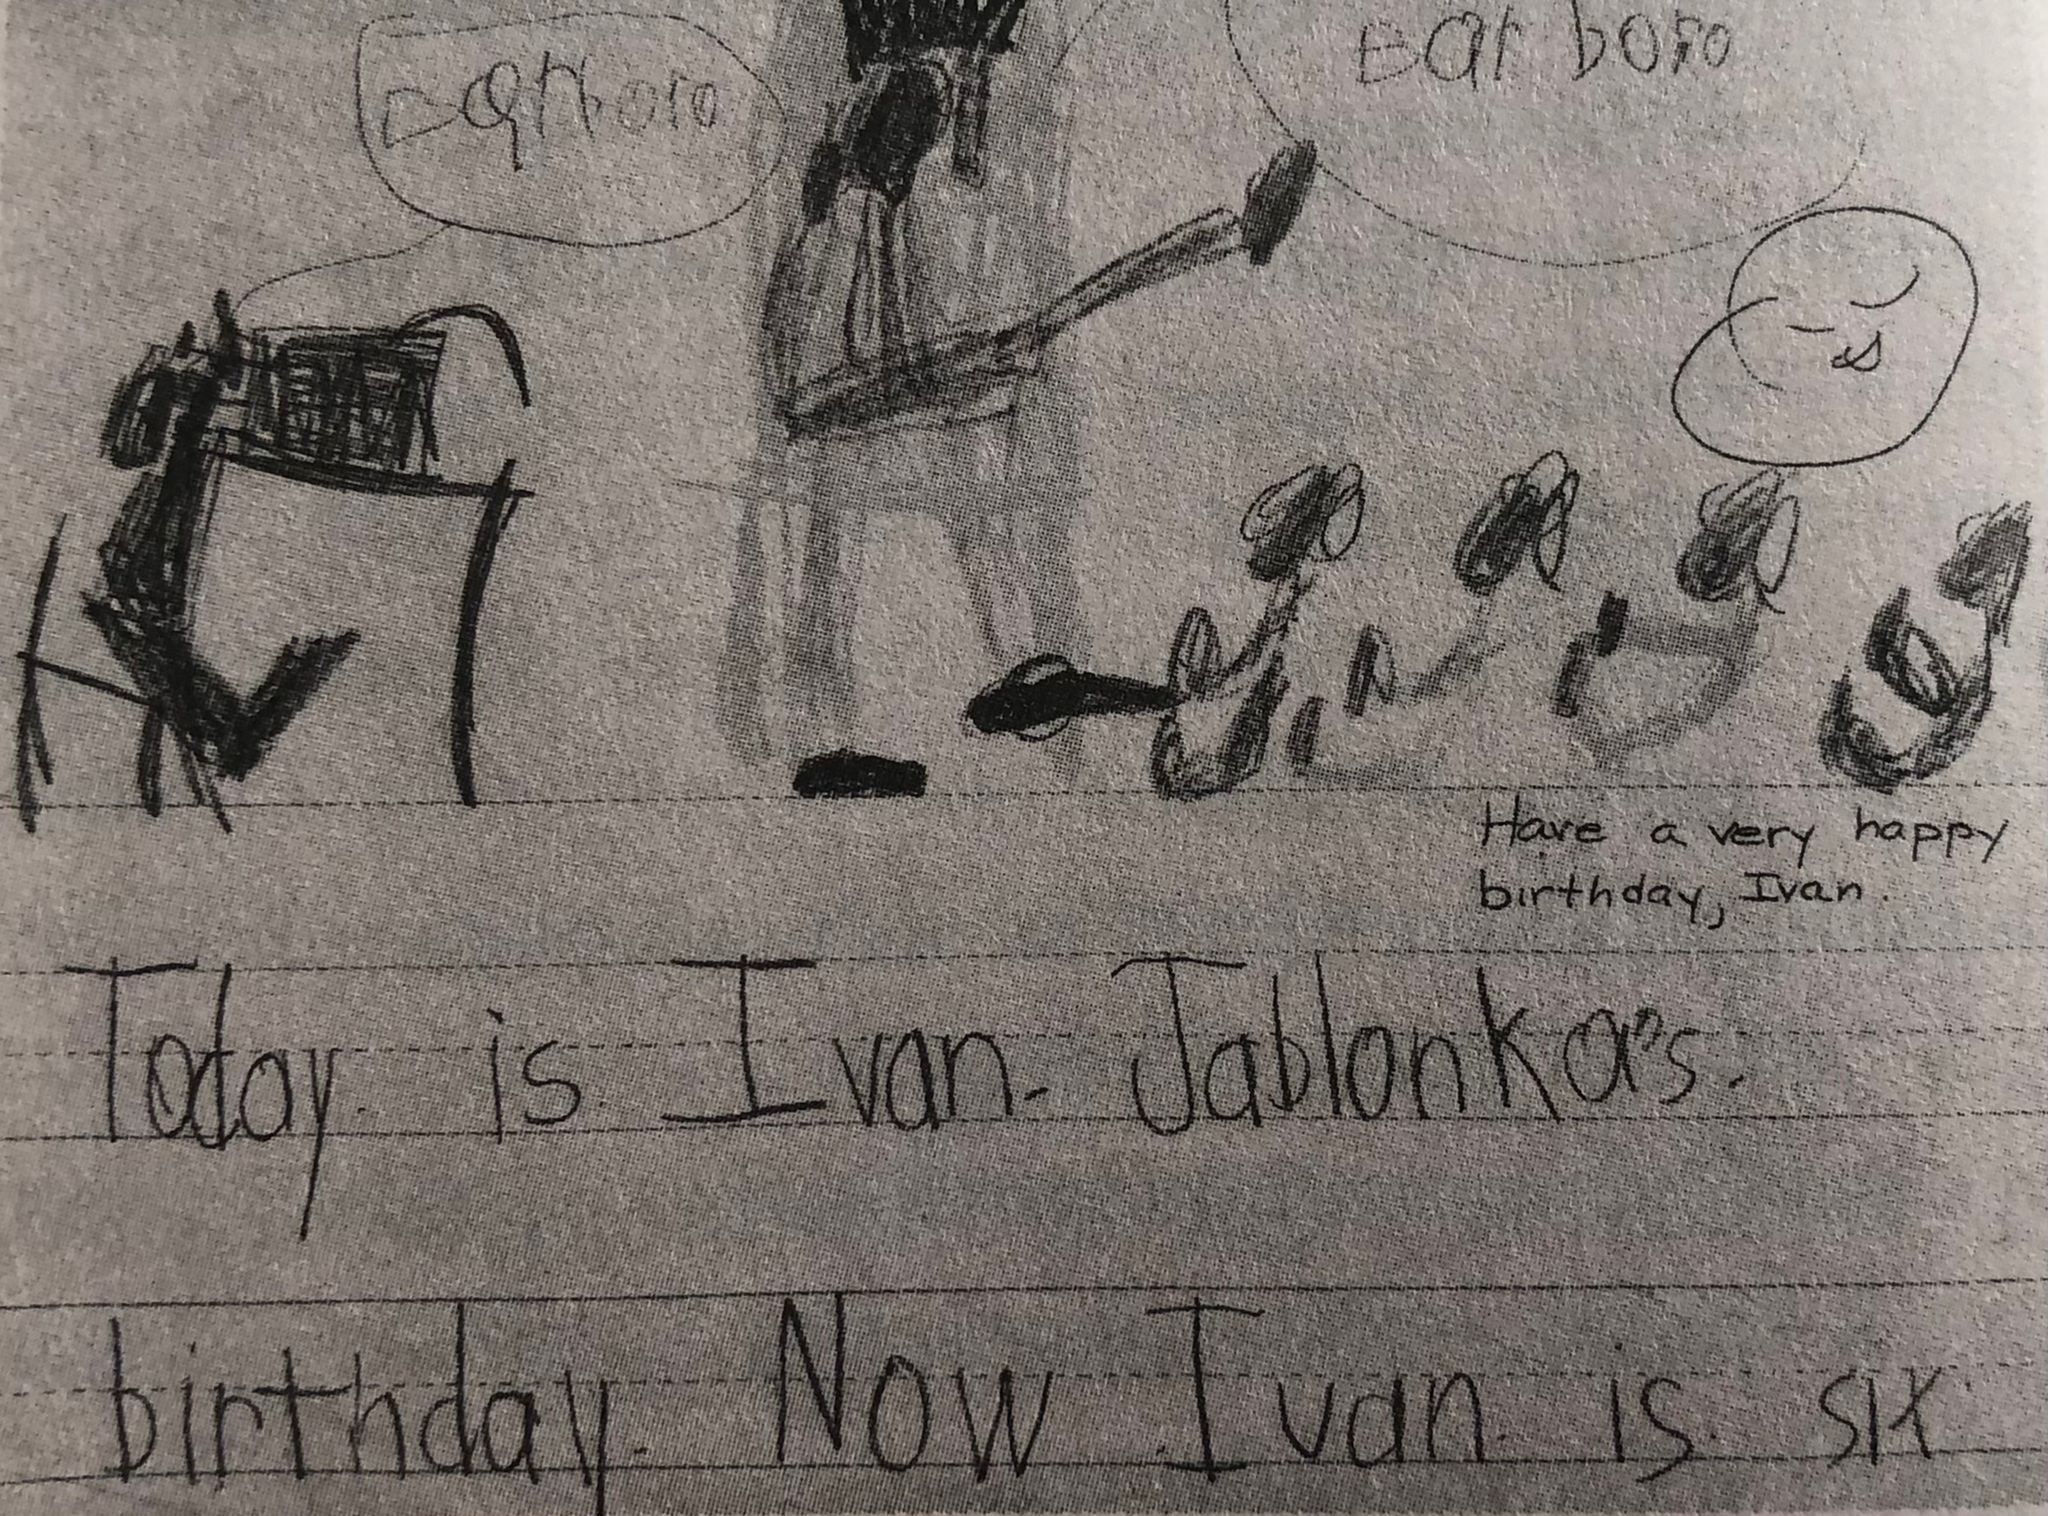 Barboro
Have a very happy
birthday, Ivan.
Today is Ivan Jablonka's
birthday. Now Ivan is six